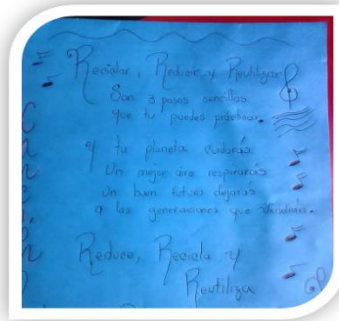 Canción
Reciclar, Reducir y Reutilizar
Son 3 pasos sencillos
que tu puedes practicar.
y tu planeta cuidarás
Un mejor aire respirarás
Un buen futuro dejaras
a las generaciones que vendrán.
Reduce, Recicla y
Reutiliza